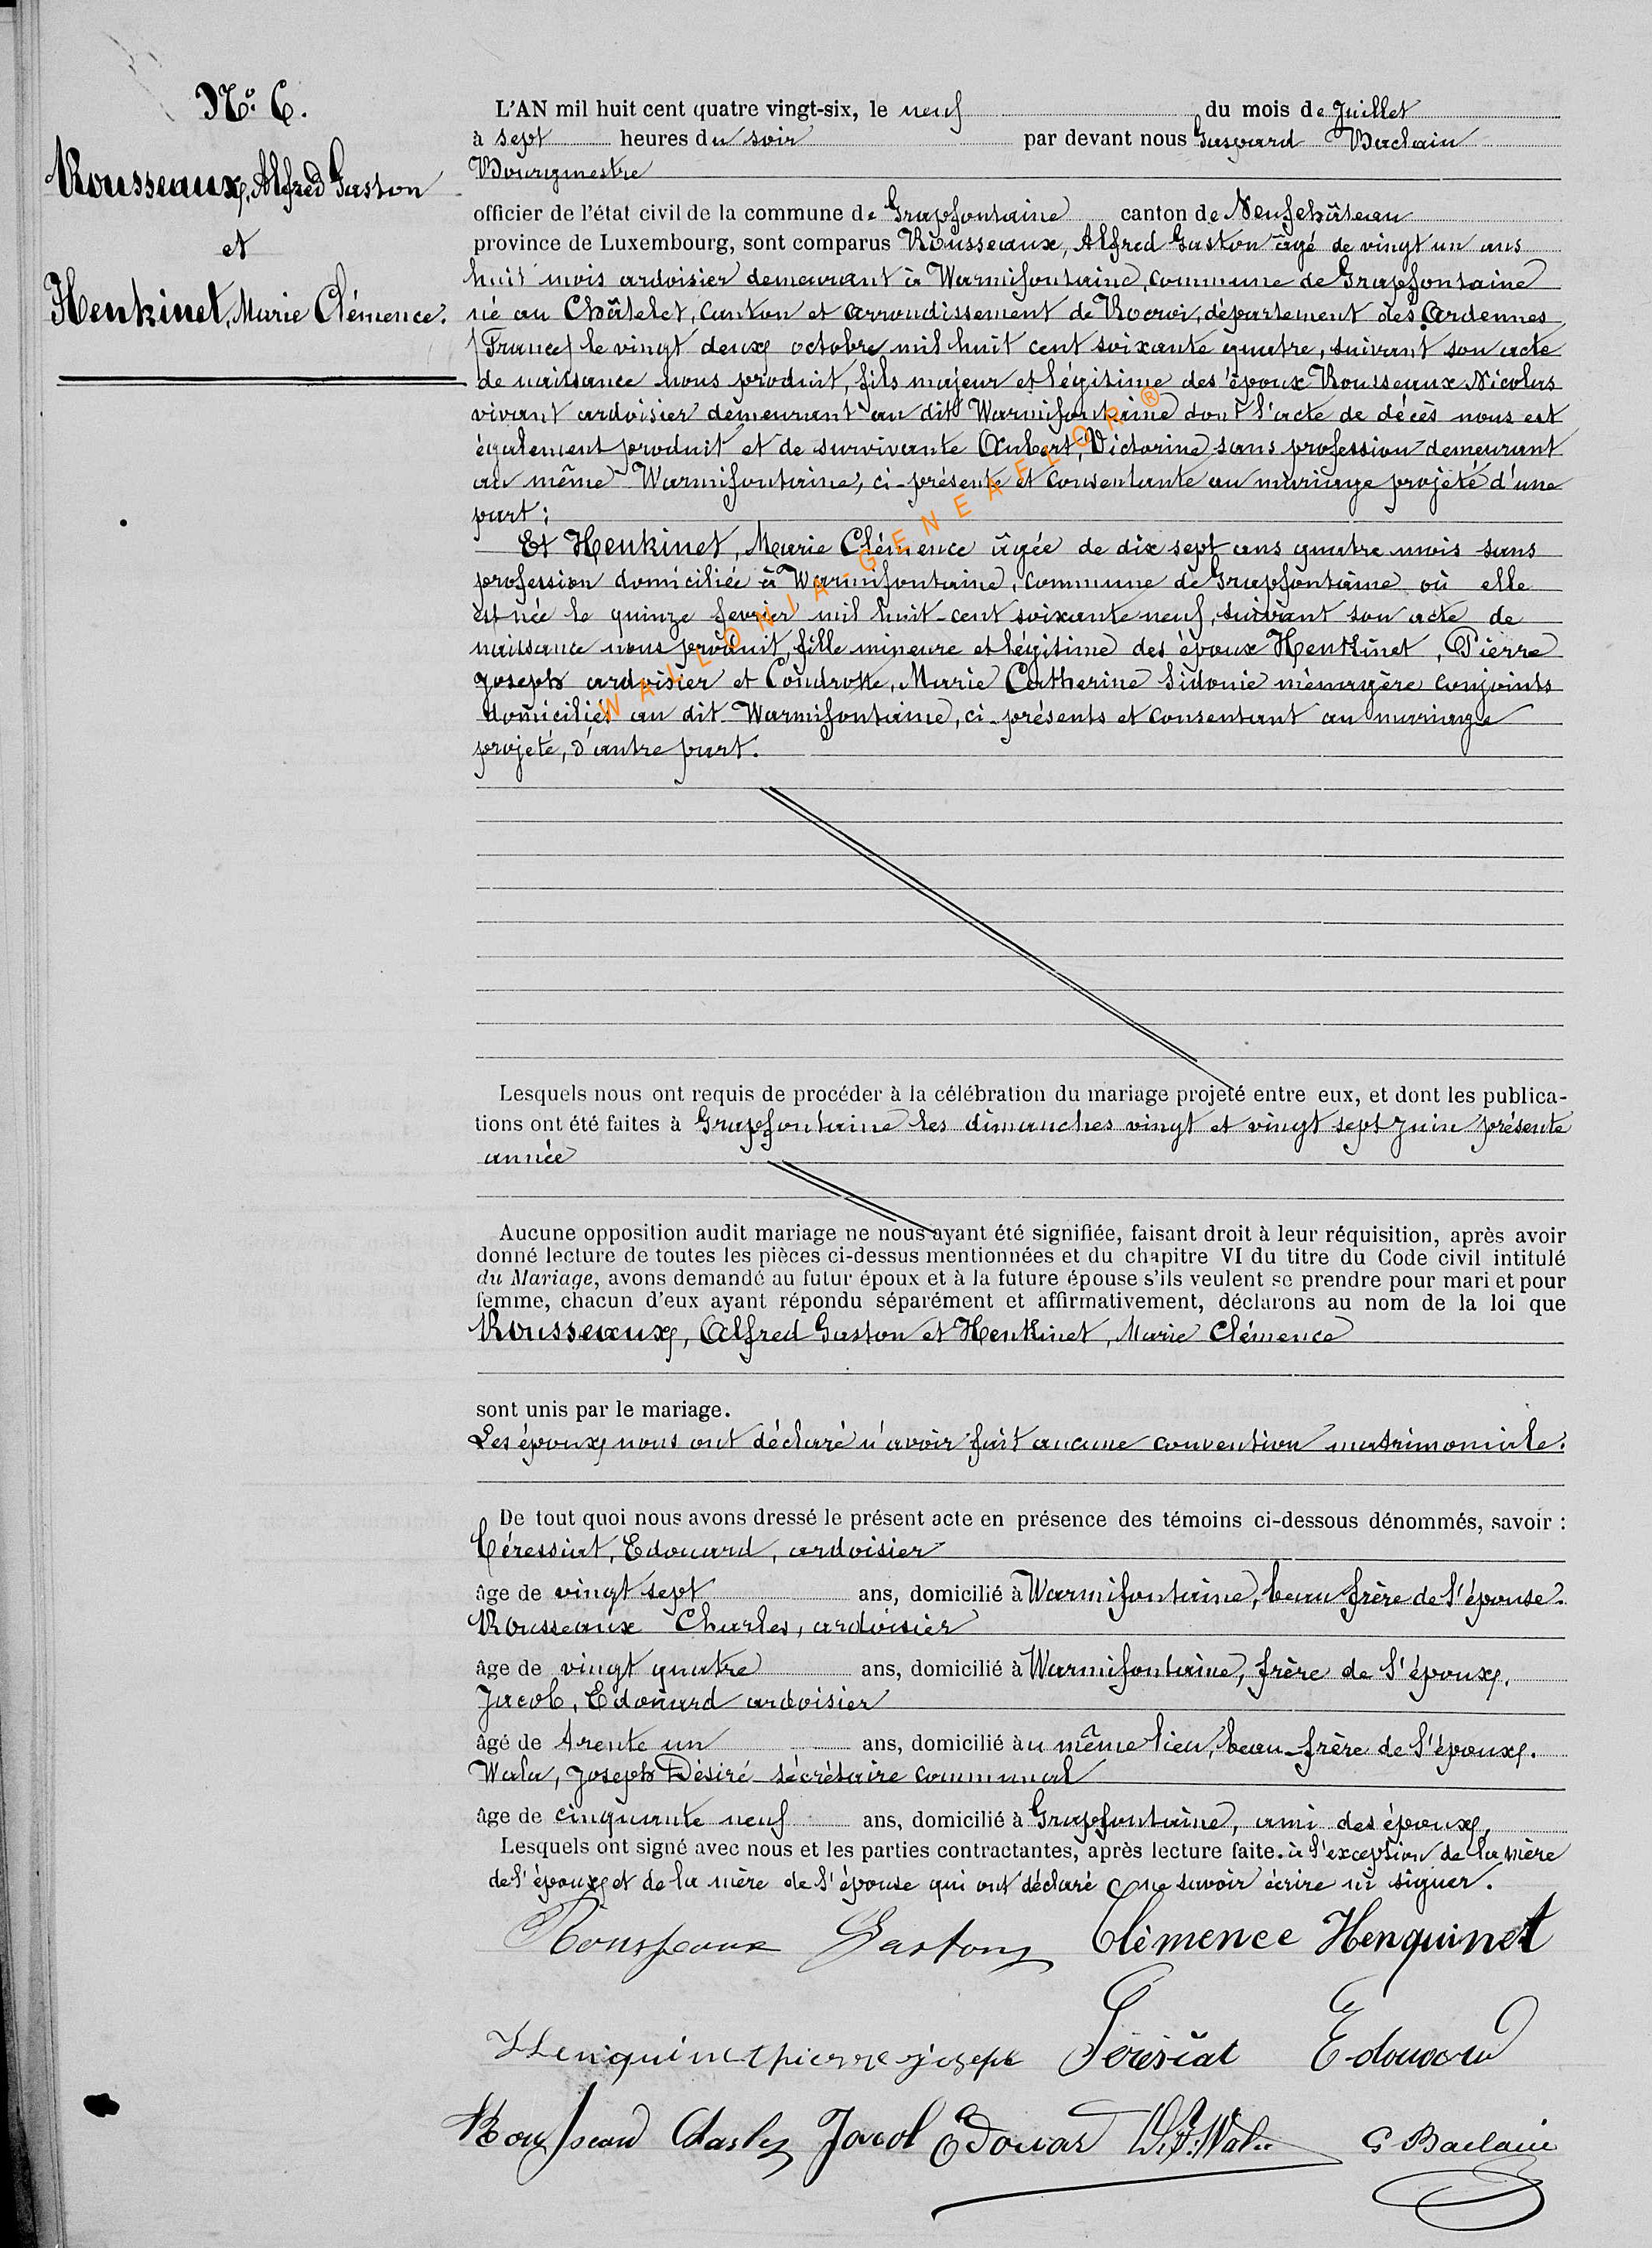 N° 6.
Rousseaux, Alfred Gaston
et
Henkinet, Marie Clémence.
L'AN mil huit cent quatre vingt-six, le neuf du mois de Juillet
à sept heures du soir par devant nous Gaspard Baclain
Bourgmestre
officier de l'état civil de la commune de Grapfontaine canton de Neufchâteau
province de Luxembourg, sont comparus Rousseaux, Alfred Gaston âgé de vingt un ans
huit mois ardoisier demeurant à Warmifontaine, commune de Grapfontaine
né au Châtelet, canton et arrondissement de Rocroi, département des Ardennes
(France) le vingt deux octobre mil huit cent soixante quatre, suivant son acte
de naissance nous produit, fils majeur et légitime des époux Rousseaux Nicolas
vivant ardoisier demeurant au dit Warmifontaine dont l'acte de décès nous est
également produit et de survivante Aubert, Victorine sans profession demeurant
au même Warmifontaine, ci-présente et consentante au mariage projeté d'une
part;
Et Henkinet, Marie Clémence âgée de dix sept ans quatre mois sans
profession domiciliée à Warmifontaine, commune de Grapfontaine où elle
est née le quinze fevrier mil huit-cent soixante neuf, suivant son acte de
naissance nous produit, fille mineure et légitime des époux Henkinet, Pierre
Joseph ardoisier et Coudrotte, Marie Catherine Sidonie ménagère conjoints
domiciliés au dit Warmifontaine, ci-présents et consentant au mariage
projeté, d'autre part.
WALLONIA-GENEAFLOR ®
Lesquels nous ont requis de procéder à la célébration du mariage projeté entre eux, et dont les publica-
tions ont été faites à Grapfontaine les dimanches vingt et vingt sept Juin présente
année
Aucune opposition audit mariage ne nous ayant été signifiée, faisant droit à leur réquisition, après avoir
donné lecture de toutes les pièces ci-dessus mentionnées et du chapitre VI du titre du Code civil intitulé
du Mariage, avons demandé au futur époux et à la future épouse s'ils veulent se prendre pour mari et pour
femme, chacun d'eux ayant répondu séparément et affirmativement, déclarons au nom de la loi que
Rousseaux, Alfred Gaston et Henkinet, Marie Clémence
sont unis par le mariage.
Les époux nous ont déclaré n'avoir fait aucune convention matrimoniale.
De tout quoi nous avons dressé le présent acte en présence des témoins ci-dessous dénommés, savoir :
Céressiat, Edouard, ardoisier
âge de vingt sept ans, domicilié à Warmifontaine, beau frère de l'épouse.
Rousseaux Charles, ardoisier
âge de vingt quatre ans, domicilié à Warmifontaine, frère de l'époux.
Jacob, Edouard ardoisier
âgé de trente un ans, domicilié au même lieu, beau-frère de l'époux.
Wala, Joseph Désiré sécrétaire communal
âge de cinquante neuf ans, domicilié à Grapfontaine, ami des époux,
Lesquels ont signé avec nous et les parties contractantes, après lecture faite. à l'exception de la mère
de l'époux et de la mère de l'épouse qui ont déclaré ne savoir écrire ni signer.
Rousseaux Gaston Clèmence Henquinet
Henquinet pierre joseph Séresiat Edouard
Rousseau Charles Jacob Edouar D.J. Wala G Baclain